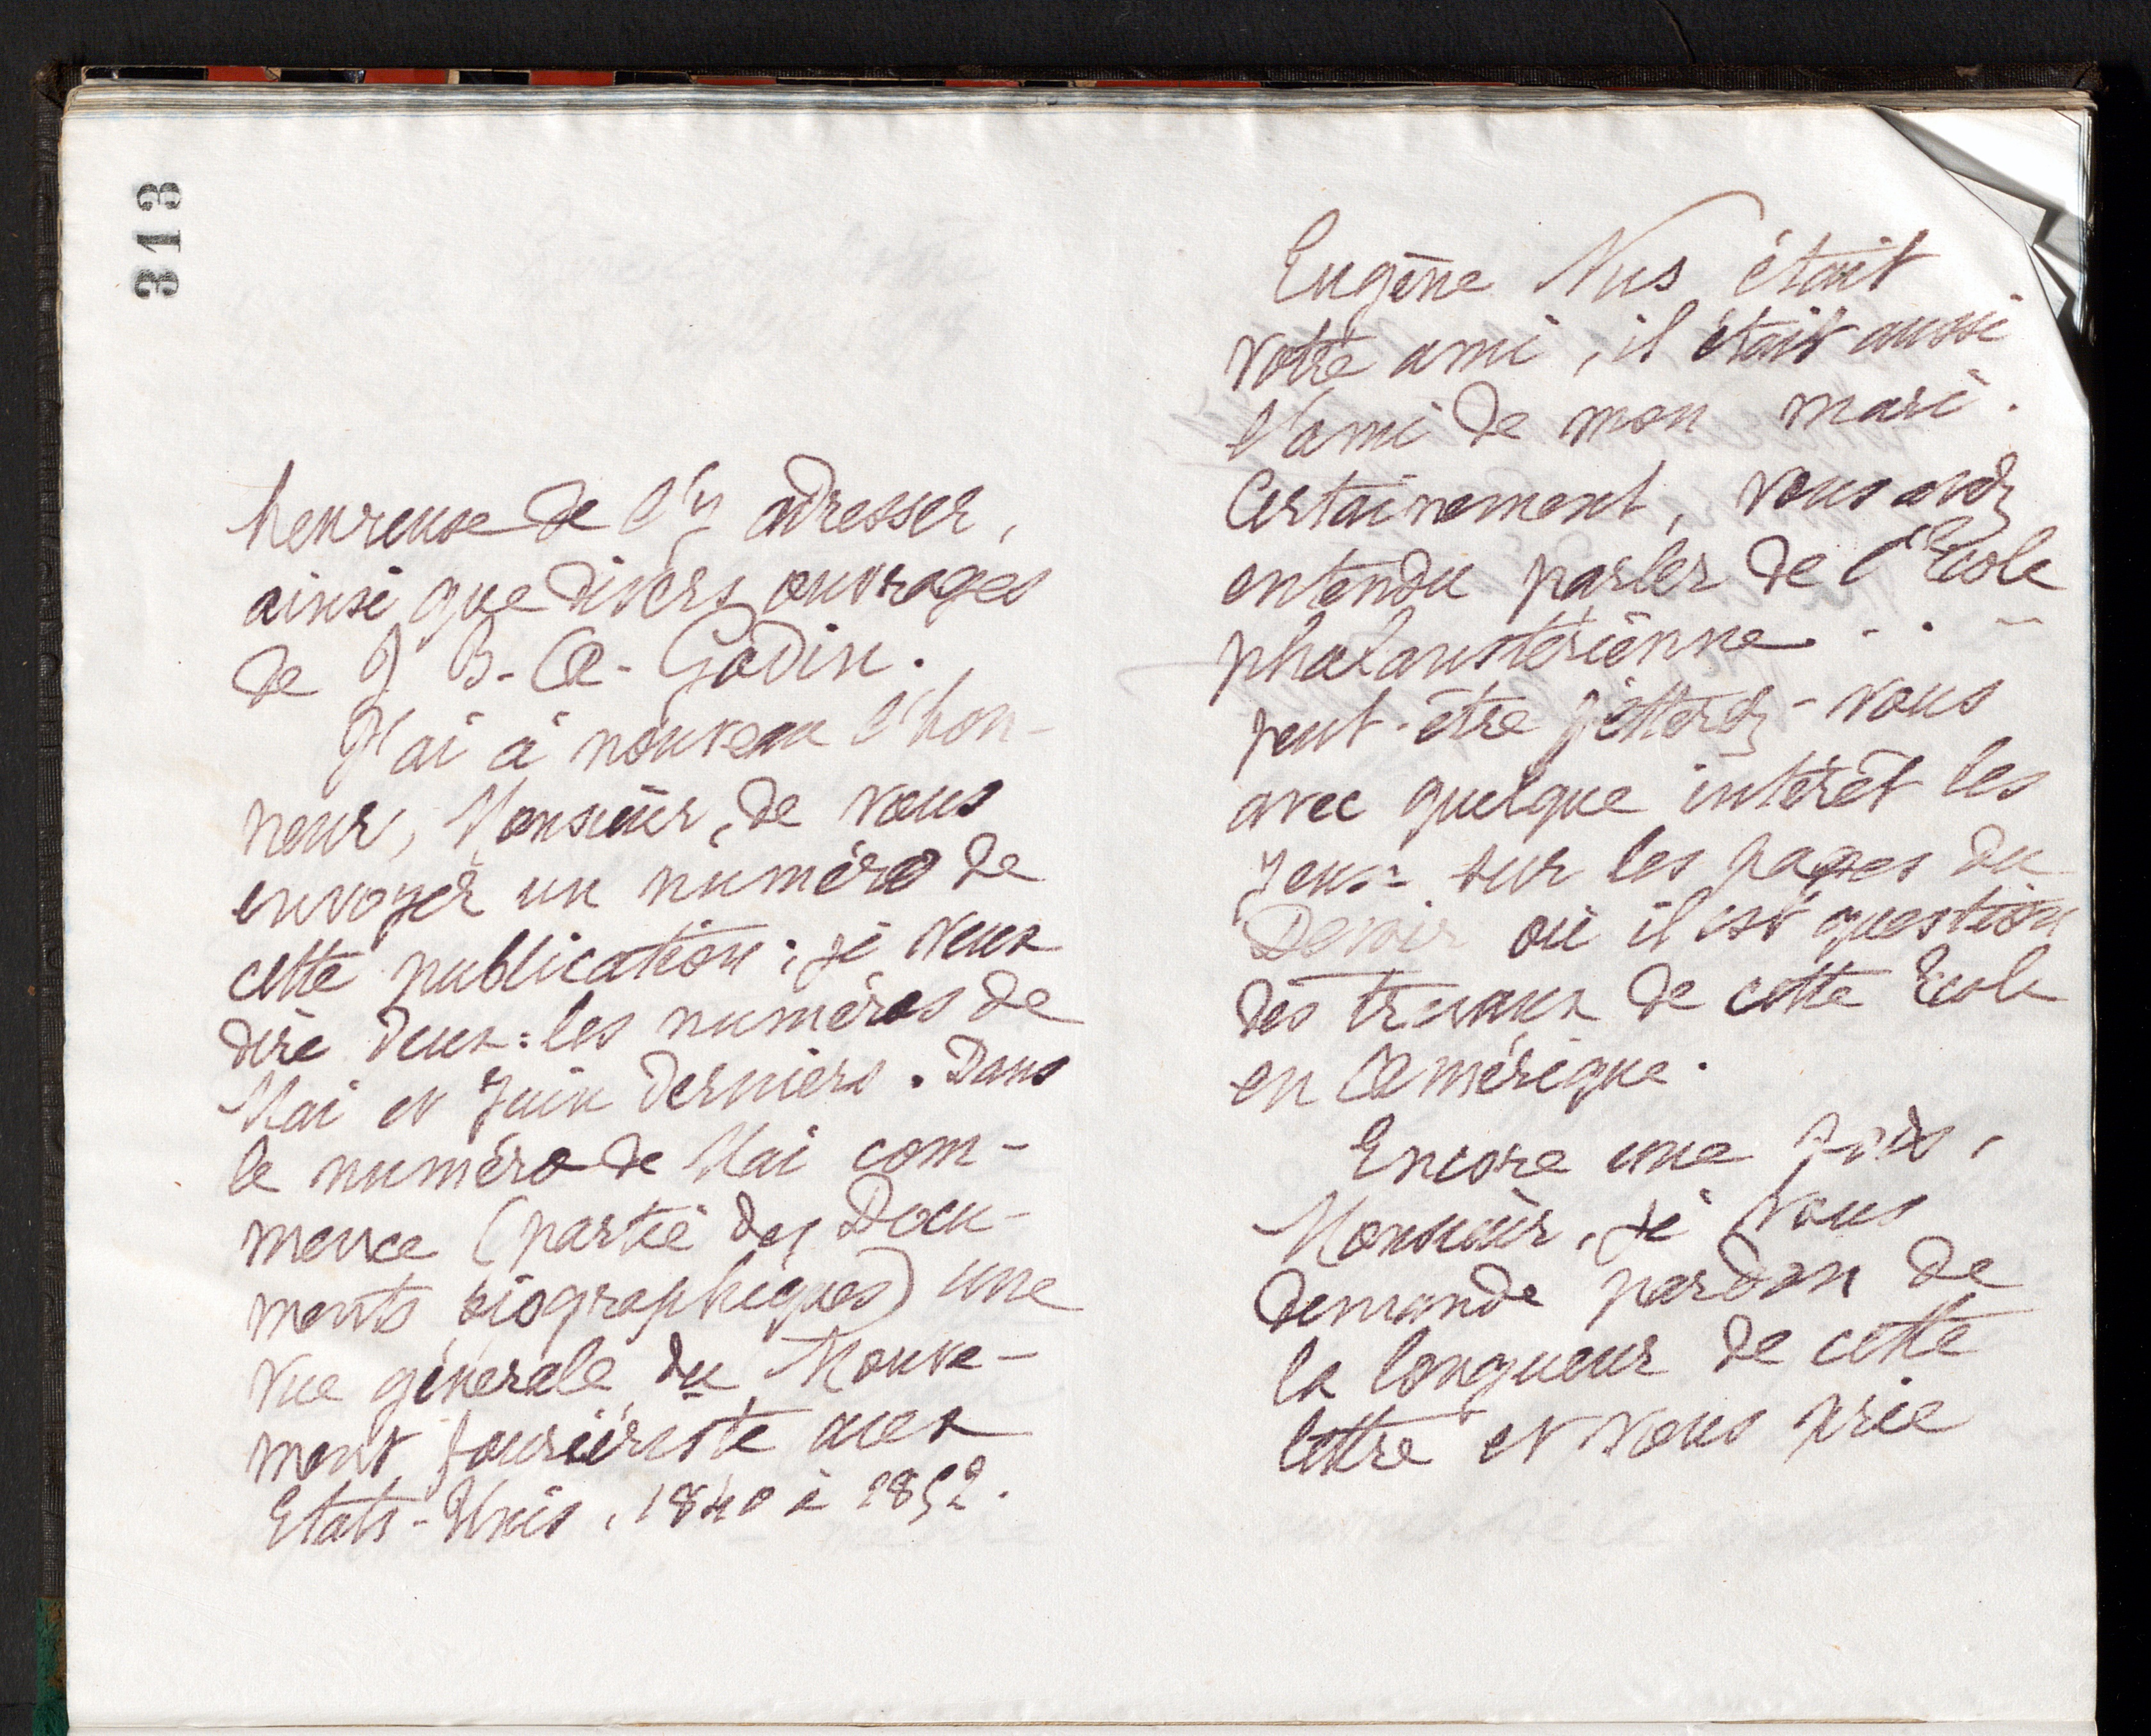 313
heureuse de l'y adresser,
ainsi que divers ouvrages
de J B.-A. Godin.
J'ai à nouveau l'hon-
neur, Monsieur, de vous
envoyer un numéro de
cette publication ; je veux
dire deux : les numéros de
Mai et Juin derniers. Dans
le numéro de Mai com-
mence (partie des Docu-
ments biographiques) une
vue générale du Mouve-
ment fouriériste aux
Etats-Unis, 1840 à 1852.
Eugène Nus était
votre ami, il était aussi
l'ami de mon mari.
Certainement, vous avez
entendu parler de l'Ecole
phalanstérienne...
peut-être jetterez-vous
avec quelque intérêt les
yeux sur les pages du
Devoir où il est question
des travaux de cette Ecole
en Amérique.
Encore une fois,
Monsieur, je vous
demande pardon de
la longueur de cette
lettre et vous prie